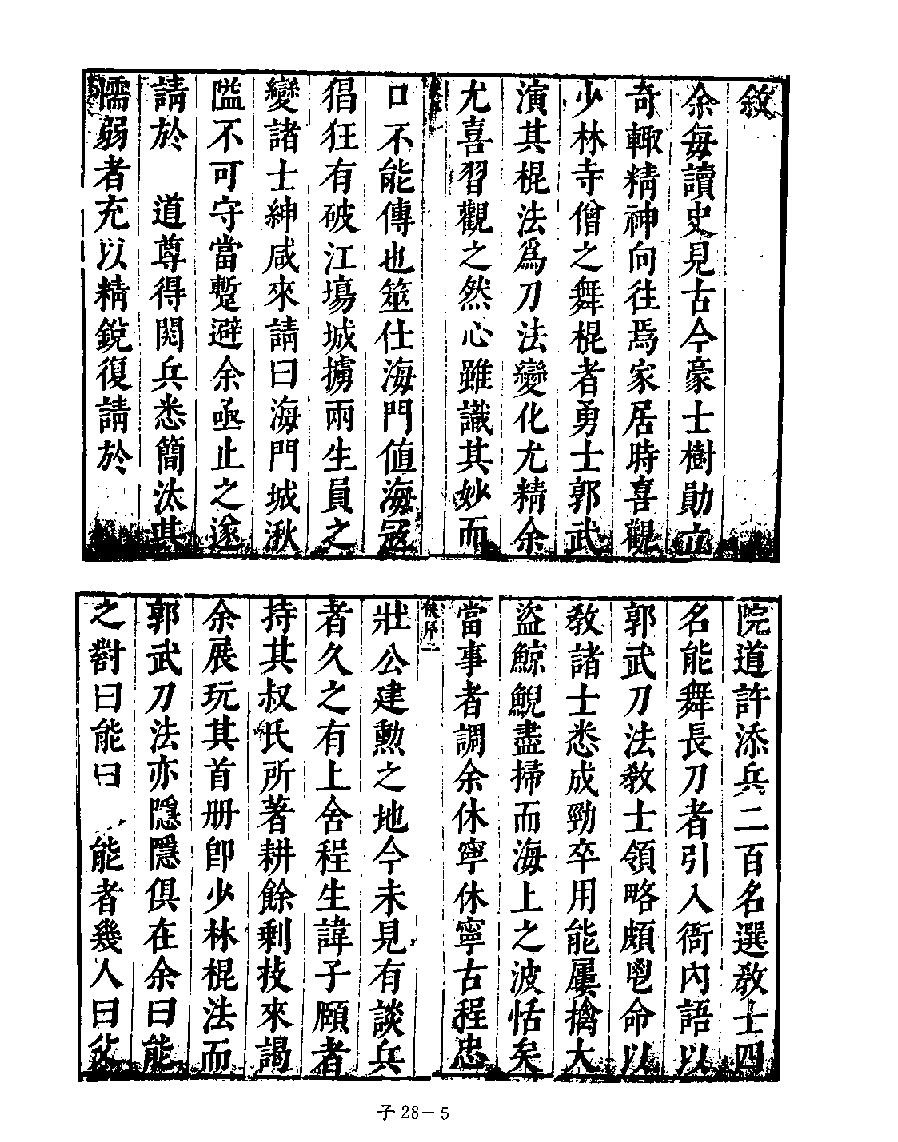 敘
余每讀史見古今豪士樹勛立
奇輙精神向往焉家居時喜觀
少林寺僧之舞棍者勇士郭武
演其棍法爲刀法變化尤精余
尤喜習觀之然心雖識其妙而
口不能傳也筮仕海門值海寇
猖狂有破江塲城擄兩生員之
變諸士紳咸來請曰海門城湫
隘不可守當蹔避余亟止之遂
請於 道尊得閱兵悉簡汰其
懦弱者充以精銳復請於
院道許添兵二百名選敎士四
名能舞長刀者引入衙內語以
郭武刀法敎士領略頗鬯命以
敎諸士悉成勁卒用能屢擒大
盜鯨鯢盡掃而海上之波恬矣
當事者調余休寧休寧古程忠
後序二
壯公建勳之地今未見有談兵
者久之有上舍程生諱子頤者
持其叔氏所著耕餘剩技來謁
余展玩其首册卽少林棍法而
郭武刀法亦隱隱俱在余曰能
之對曰能曰 能者幾人曰
子28－5